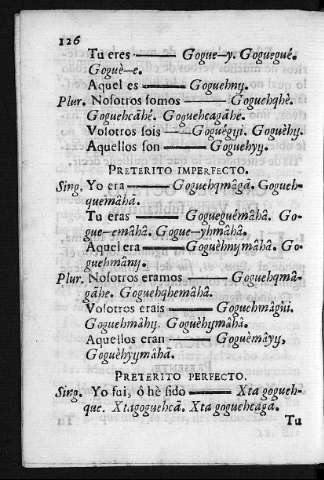 126
Tu eres ——— Gogue—y. Goguegué.
Goguè—e.
Aquel es ——— Goguehny.
Plur. Nosotros somos ——— Goguehqhè.
Goguehcãhé. Goguehcagãhe.
Vosotros sois ——— Goguégyi. Goguèhy.
Aquellos son ——— Goguehyy.
PRETERITO IMPERFECTO.
Sing. Yo era ——— Goguehqmâgâ. Gogueh-
quemâhâ.
Tu eras ——— Gogueguémâhâ. Go-
gue—emâhâ. Gogue—yhmâhâ.
Aquel era ——— Goguèhnymâhâ. Go-
guehmâny.
Plur. Nosotros eramos ——— Goguehqmâ-
gâhe. Goguehqhemâhâ.
Vosotros erais ——— Goguehmâgüi.
Goguehmâhy. Goguèhymâhâ.
Aquellos eran ——— Goguèmâyy,
Goguèhyymâhâ.
PRETERITO PERFECTO.
Sing. Yo fui, ó hè sido ——— Xta gogueh-
que. Xtagoguehcâ. Xta goguehcâgâ.
Tu